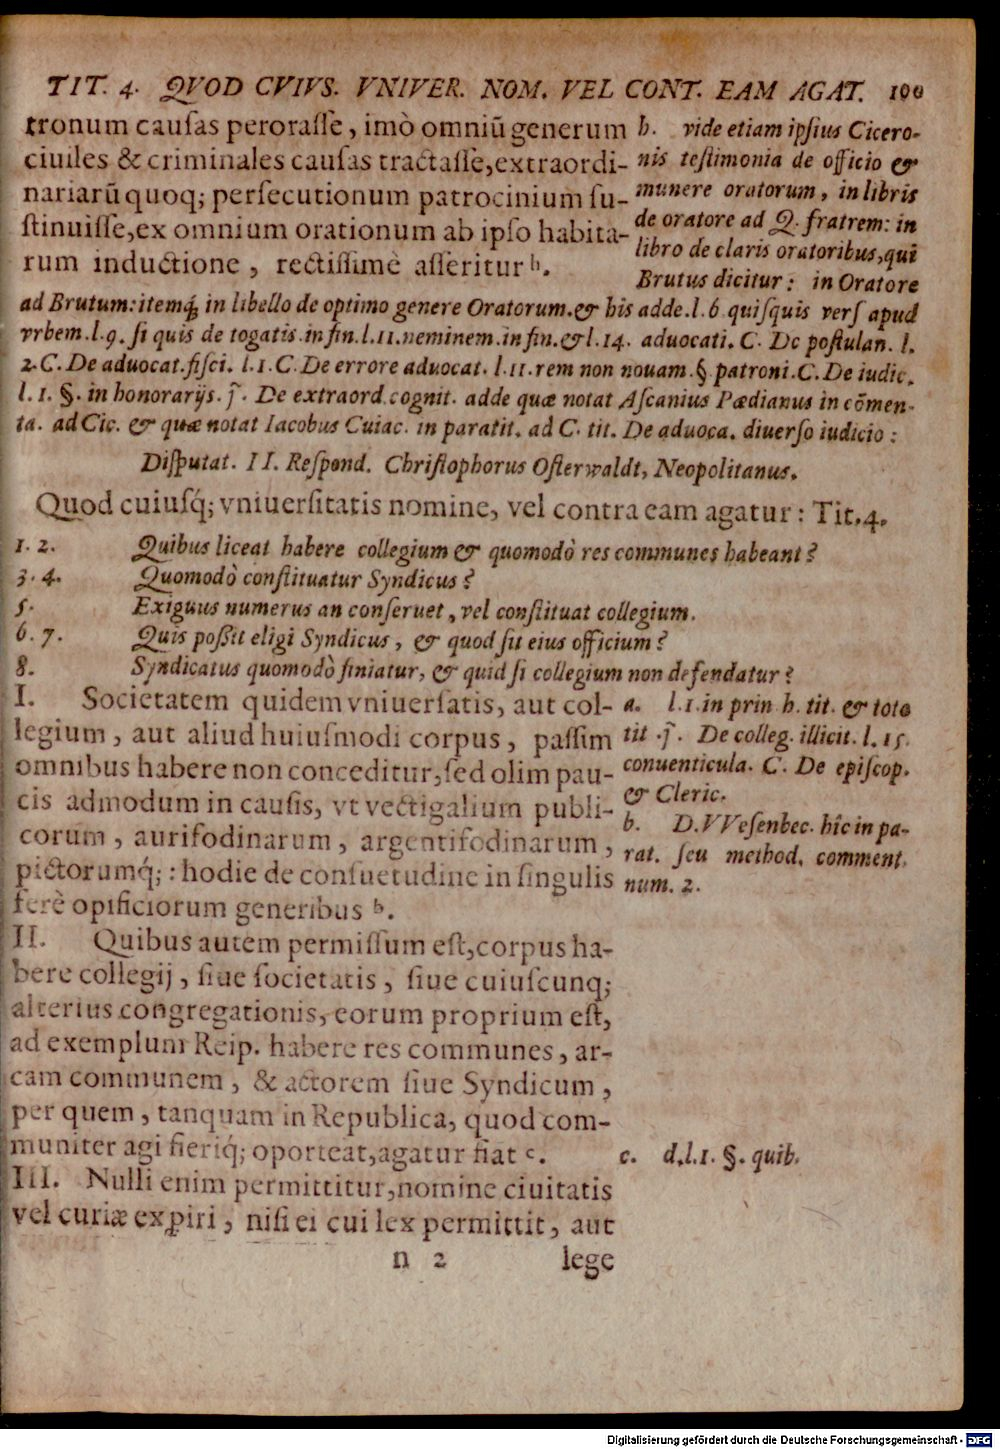 TIT. 4. QVOD CVIVS. VNIVER. NOM. VEL CONT. EAM AGAT. 100
tronum cauſas peroraſſe, imò omniũ generum
ciuiles & criminales cauſas tractaſſe, extraordi-
nariarũ quoq; perſecutionum patrocinium ſu-
ſtinuiſſe, ex omnium orationum ab ipſo habita-
rum inductione, rectiſſimè aſſeritur h.
h. vide etiam ipſius Cicero-
nis teſtimonia de officio &
munere oratorum, in libris
de oratore ad Q. fratrem: in
libro de claris oratoribus, qui
Brutus dicitur: in Oratore
ad Brutum: itemq́, in libello de optimo genere Oratorum. & his adde. l. 6 quiſquis verſ apud
vrbem. l. 9. ſi quis de togatis. in fin. l. 11. neminem. in fin. & l. 14. aduocati. C. De poſtulan. l.
2. C. De aduocat. fiſci. l. 1. C. De errore aduocat. l. 11. rem non nouam. §. patroni. C. De iudic.
l. 1. §. in honorarijs. ƒ. De extraord. cognit. adde quæ notat Aſcanius Pædianus in cōmen-
ta. ad Cic. & quæ notat Iacobus Cuiac. in paratit. ad C. tit. De aduoca. diuerſo iudicio:
Diſputat. II. Reſpond. Chriſtophorus Oſterwaldt, Neopolitanus.
Quod cuiuſq́; vniuerſitatis nomine, vel contra eam agatur: Tit. 4.
1. 2. Quibus liceat habere collegium & quomodò res communes habeant?
3. 4. Quomodò conſtituatur Syndicus?
5. Exiguus numerus an conſeruet, vel conſtituat collegium.
6. 7. Quis poßit eligi Syndicus, & quod ſit eius officium?
8. Syndicatus quomodò finiatur, & quid ſi collegium non defendatur?
I. Societatem quidem vniuerſatis, aut col-
legium, aut aliud huiuſmodi corpus, paſſim
omnibus habere non conceditur, ſed olim pau-
cis admodum in cauſis, vt vectigalium publi-
corum, aurifodinarum, argentifodinarum,
pictorumq́;: hodie de conſuetudine in ſingulis
ferè opificiorum generibus b.
a. l. 1. in prin h. tit. & toto
tit. ƒ. De colleg. illicit. l. 15.
conuenticula. C. De epiſcop.
& Cleric.
b. D. VVeſenbec. hîc in pa-
rat. ſeu method. comment.
num. 2.
II. Quibus autem permiſſum eſt, corpus ha-
bere collegij, ſiue ſocietatis, ſiue cuiuſcunq;
alterius congregationis, eorum proprium eſt,
ad exemplum Reip. habere res communes, ar-
cam communem, & actorem ſiue Syndicum,
per quem, tanquam in Republica, quod com-
muniter agi fieriq́; oporteat, agatur fiat c.
c. d. l. 1. §. quib.
III. Nulli enim permittitur, nomine ciuitatis
vel curiæ exꝑiri, niſi ei cui lex permittit, aut
n 2 lege
Digitalisierung gefördert durch die Deutsche Forschungsgemeinschaft - DFG